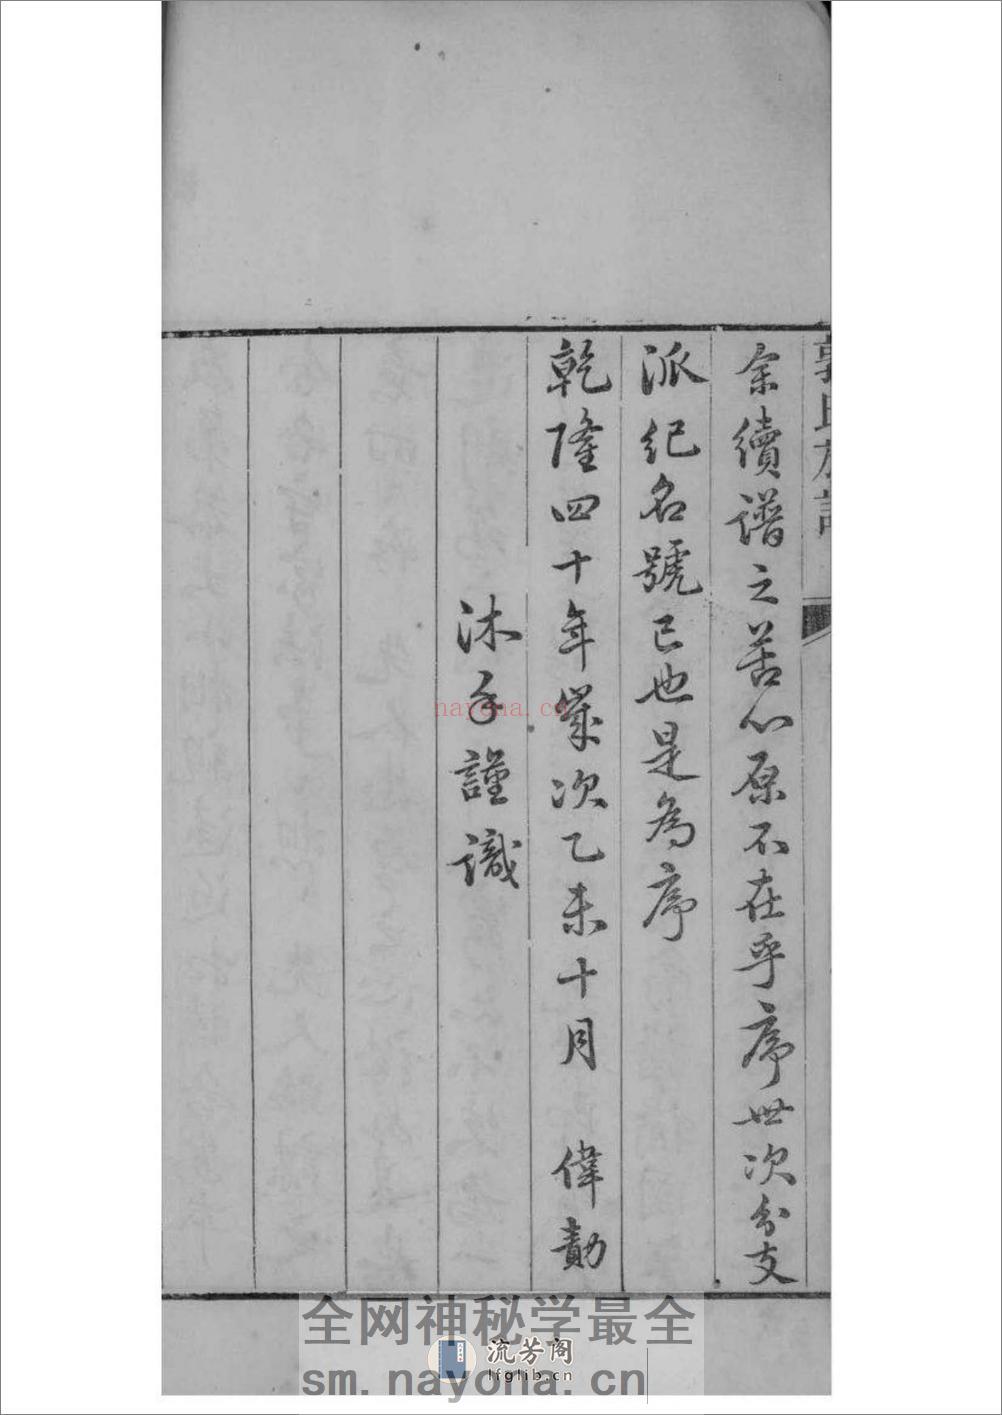 余續譜之苦心原不在乎序世次分支
派紀名號已也是為序
乾隆四十年歲次乙未十月 偉勣
沐手謹識
郭氏族譜
nayona.cn
全网神秘学最全
流芳阁
lfglib.cn
sm.nayona.cn